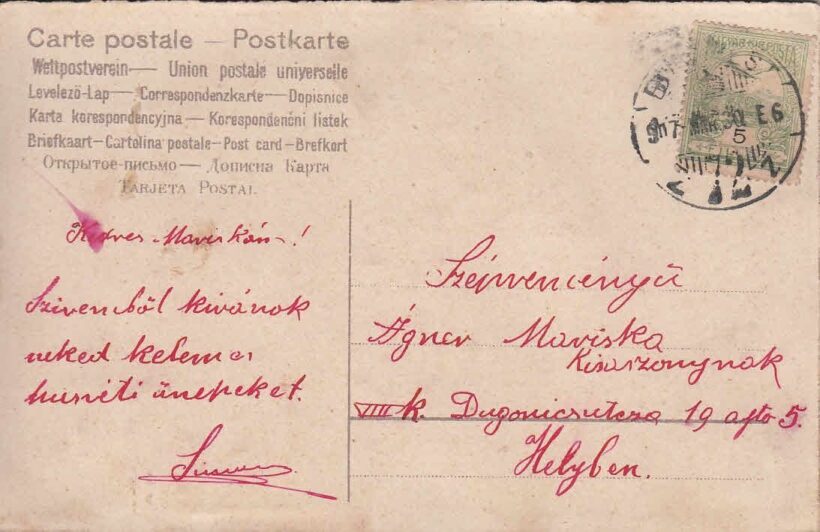 Carte postale — Postkarte
Weltpostverein — Union postale universelle
Levelező-Lap — Correspondenzkarte — Dopisnice
Karta korespondencyjna — Korespondenční lístek
Briefkaart — Cartolina postale - Post card - Brefkort
Открытое-письмо — Дописна Карта
TARJETA POSTAL
Kedves Mariskám!
Szivemből kivánok
neked kelemes
husvéti ünepeket.
Szépreményű
Ágner Mariska
Kisaszonynak
VIII k. Dugonicsutcza 19 ajto 5.
Helyben.
MAR. 30. E6
5